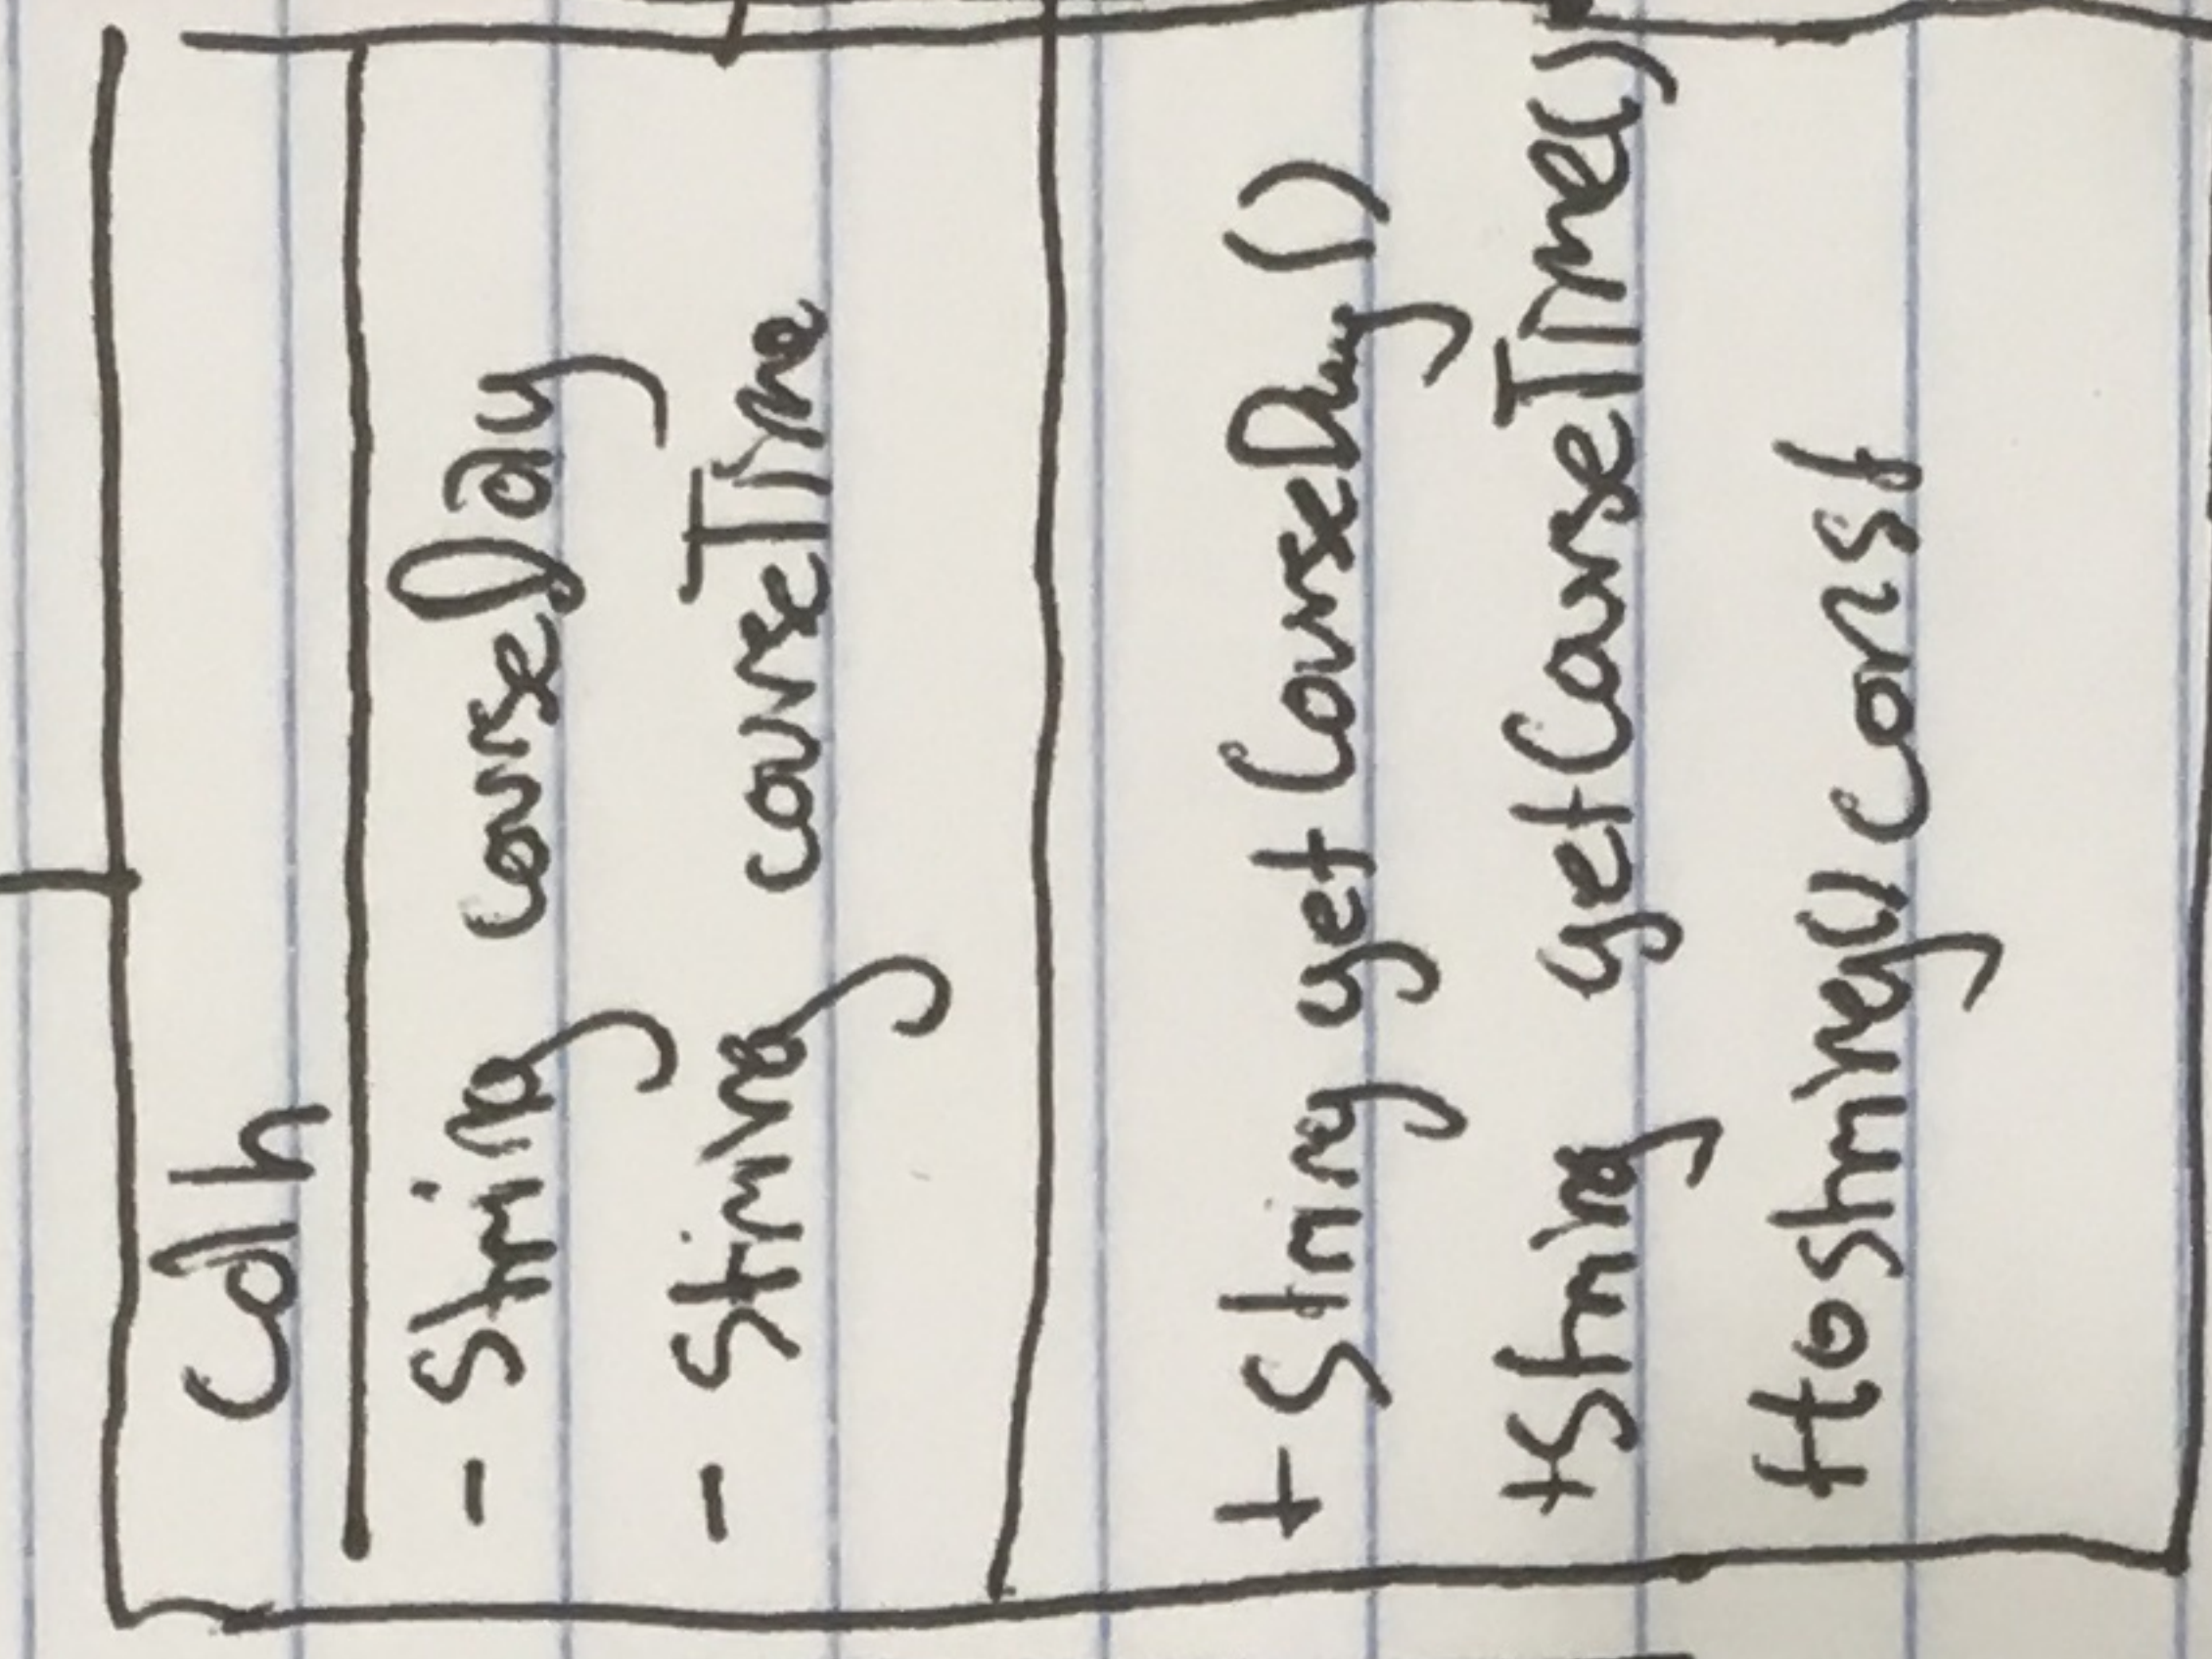 Cdh
- String courseDay
- String courseTime
+ String getCourseDay()
+ String getCourseTime()
+ toString() const